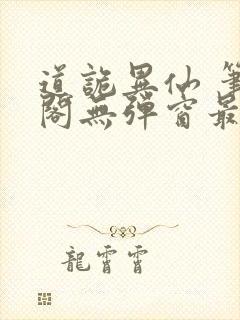 道詭異仙 筆
閣無彈窗最
龍霄霄